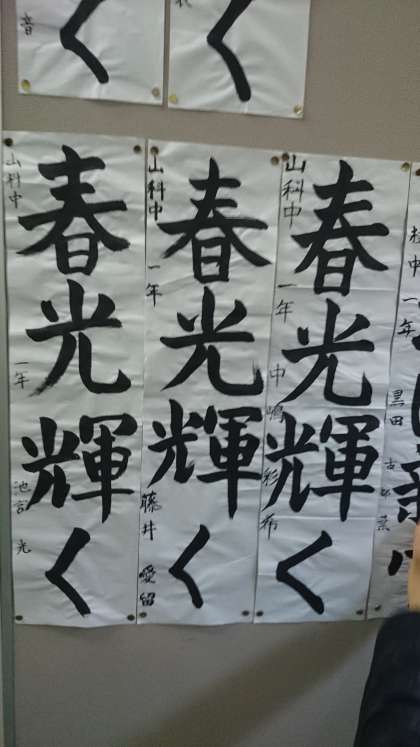 音
く
く
春光輝く
山科中 一年 池宮 光
春光輝く
山科中 一年 藤井 愛留
春光輝く
山科中 一年 中嶋 彩希
中 一年 黒田